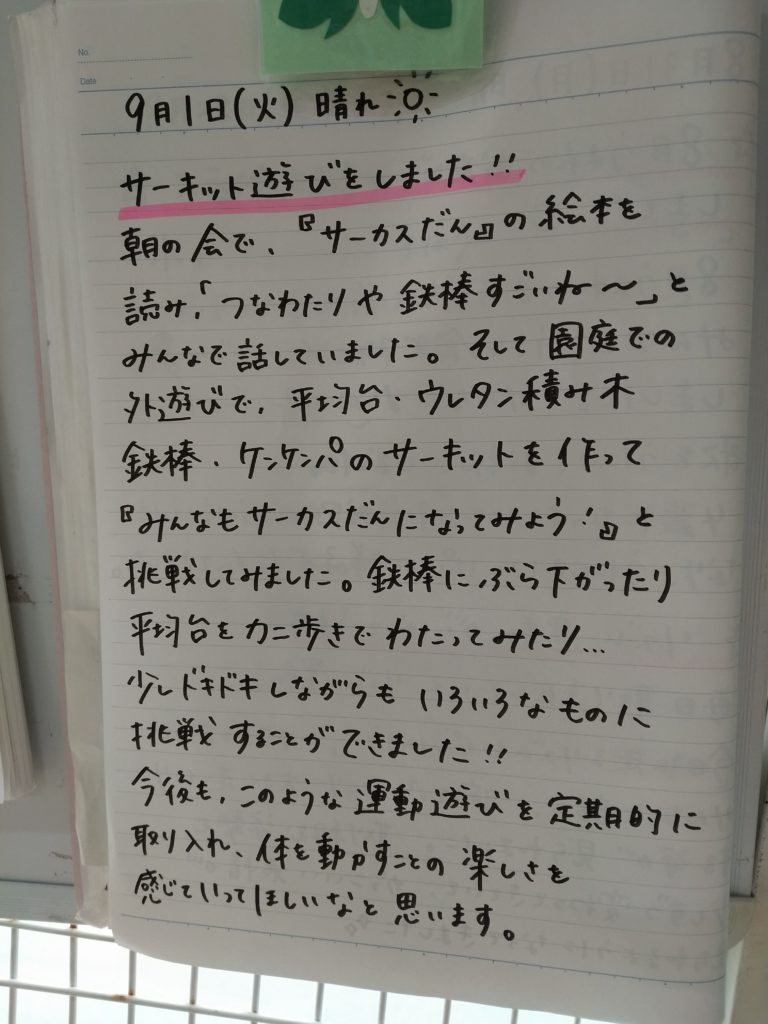 No.
Date
9月1日(火) 晴れ
サーキット遊びをしました!!
朝の会で、『サーカスだん』の絵本を
読み、「つなわたりや鉄棒すごいね〜」と
みんなで話していました。そして園庭での
外遊びで、平均台・ウレタン積み木
鉄棒・ケンケンパのサーキットを作って
『みんなもサーカスだんになってみよう!』と
挑戦してみました。鉄棒にぶら下がったり
平均台をカニ歩きでわたってみたり...
少しドキドキしながらも いろいろなものに
挑戦することができました!!
今後も、このような運動遊びを定期的に
取り入れ、体を動かすことの楽しさを
感じていってほしいなと思います。